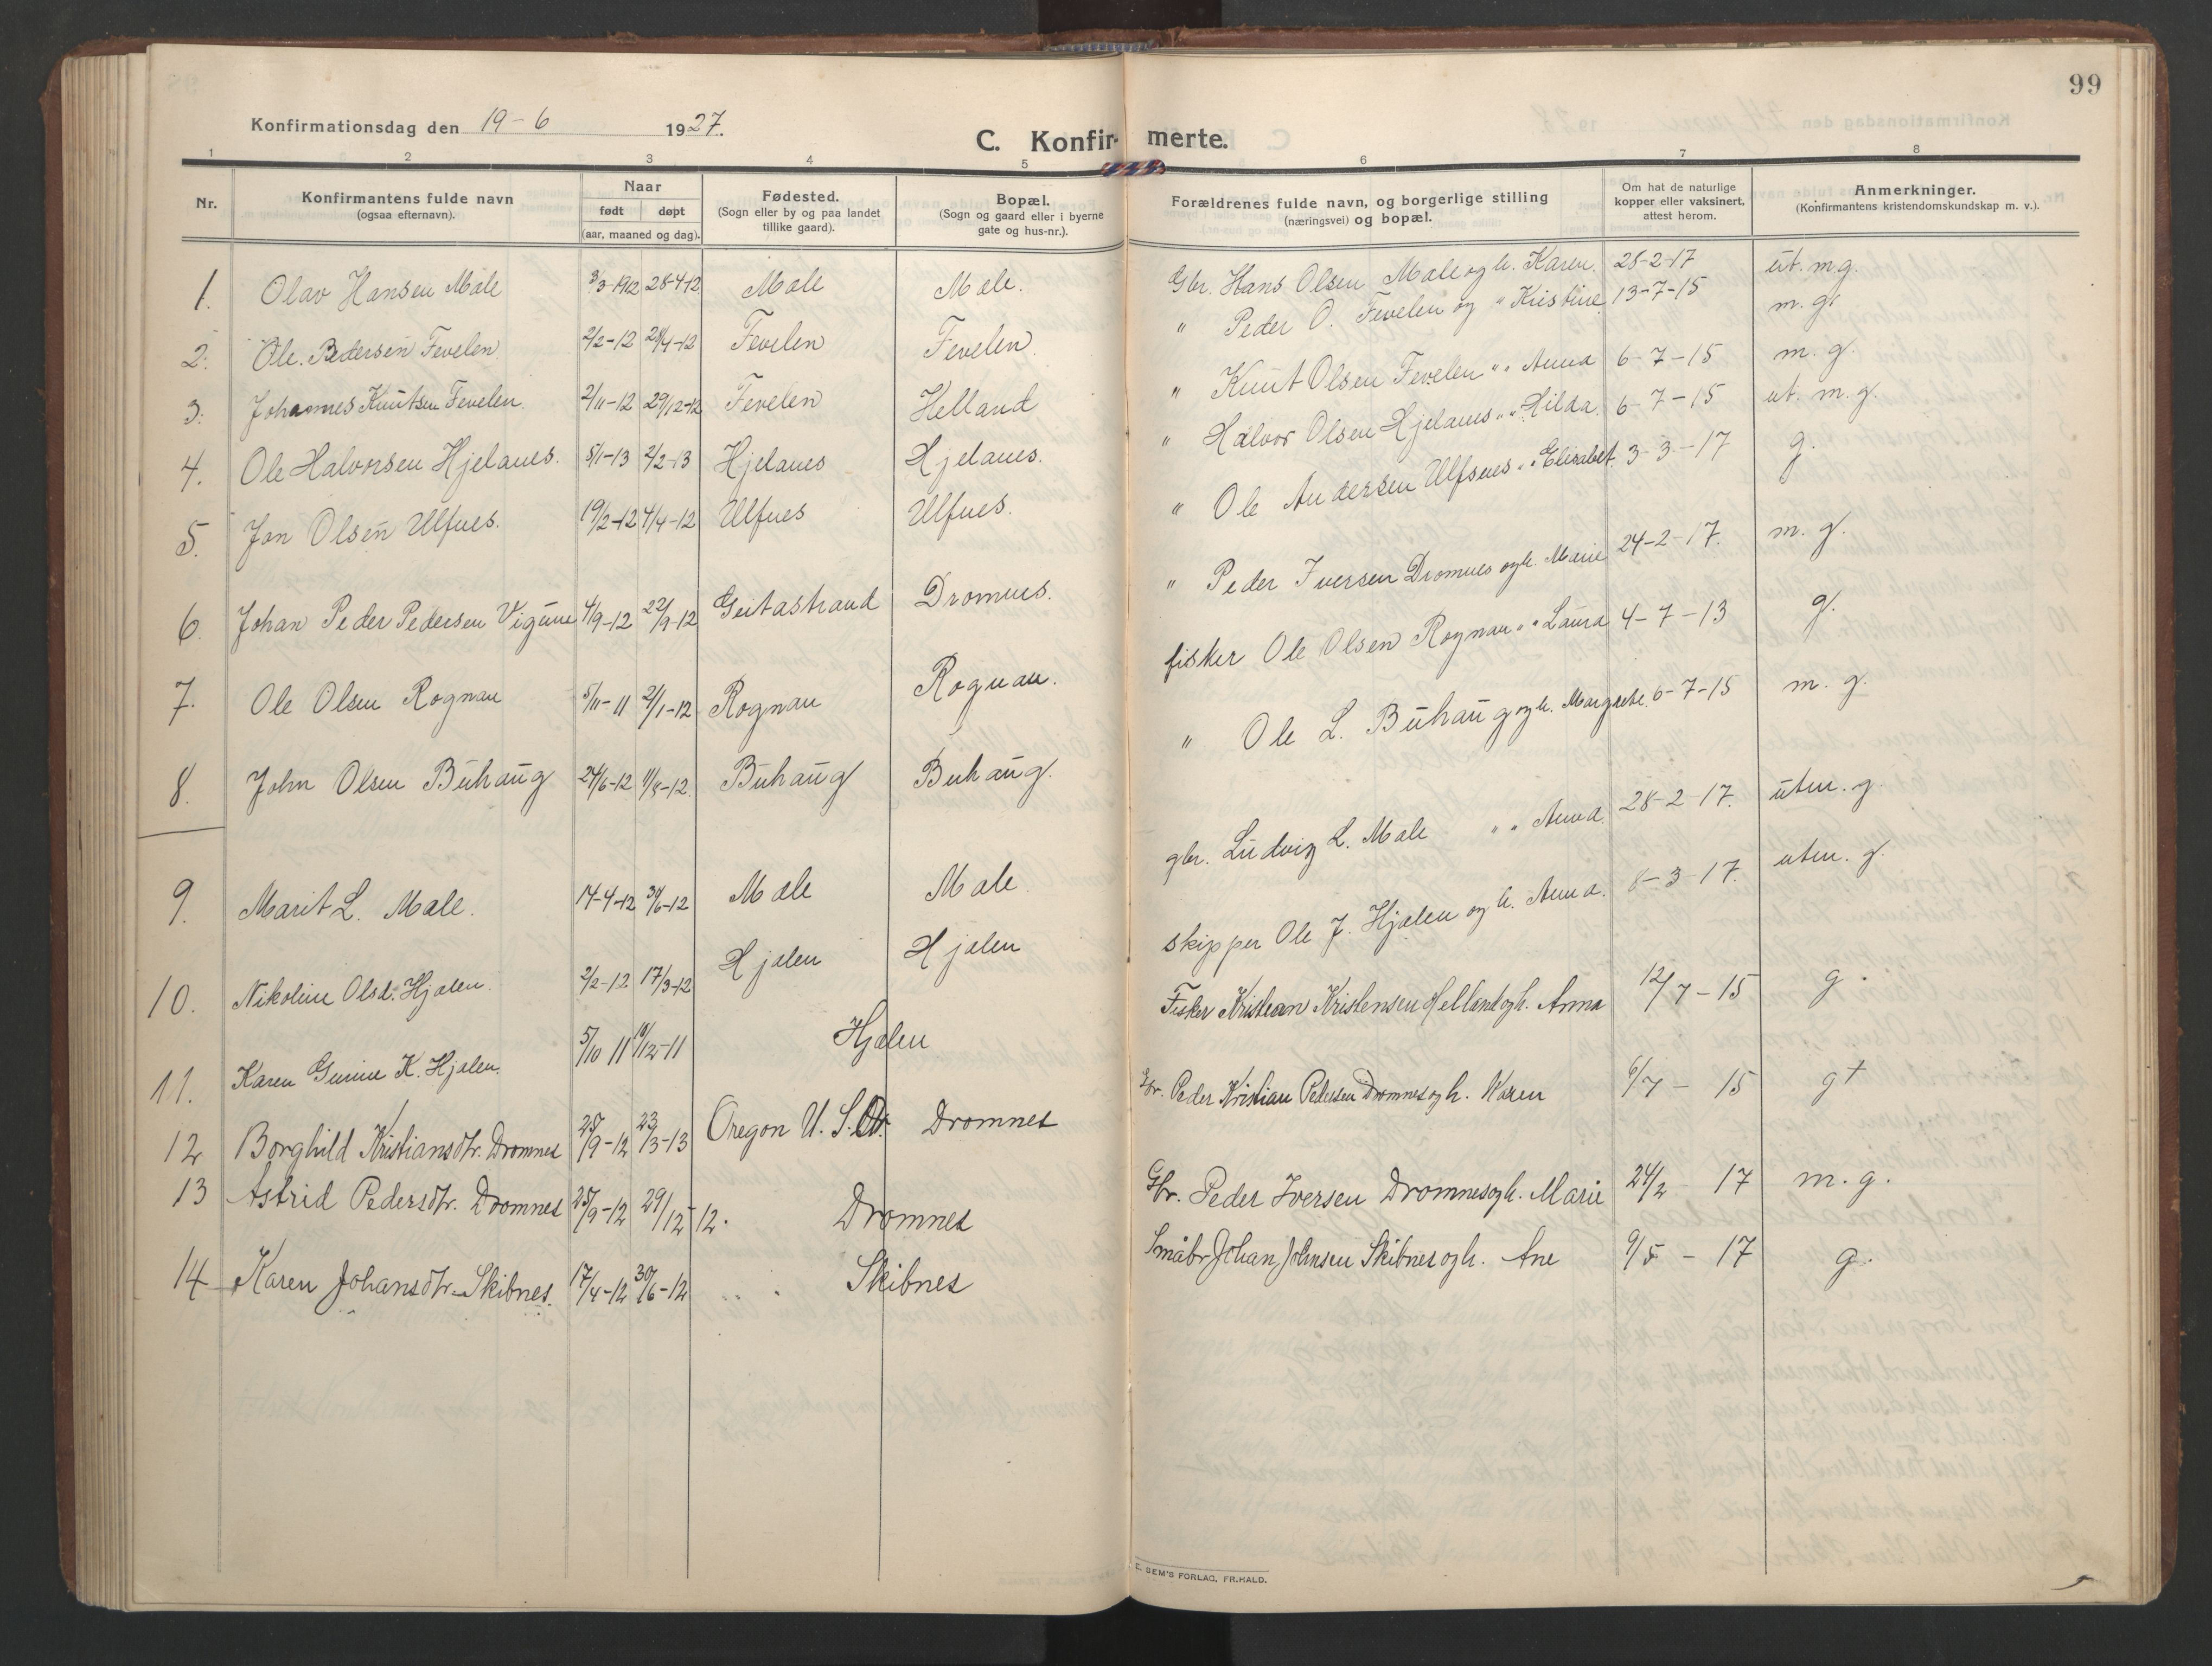 99
Konfirmationsdag den 19-6 1927.
C. Konfir- merte.
1 2 3 4 5 6 7 8
Nr.
Konfirmantens fulde navn
(ogsaa efternavn).
Naar
født døpt
(aar, maaned og dag).
Fødested.
(Sogn eller by og paa landet
tillike gaard).
Bopæl.
(Sogn og gaard eller i byerne
gate og hus-nr.).
Forældrenes fulde navn, og borgerlige stilling
(næringsvei) og bopæl.
Om hat de naturlige
kopper eller vaksinert,
attest herom.
Anmerkninger.
(Konfirmantens kristendomskundskap m. v.).
1. Olav Hansen Male 3/3-1912 28-4-12 Male Male. Gbr. Hans Olsen Male og h. Karen. 28-2-17 ut. m.g.
2. Ole Pedersen Fevelen 2/2-12 28/4-12 Fevelen Fevelen " Peder O. Fevelen og " Kristine 13-7-15 m. g.
3. Johannes Knutsen Fevelen 2/11-12 29/12-12 Fevelen Helland " Knut Olsen Fevelen " " Anna 6-7-15 m. g.
4. Ole Halvorsen Hjelanes. 5/1-13 2/2-13 Hjelanes Hjelanes. " Halvor Olsen Hjelanes " " Hilda. 6-7-15 ut. m. g.
5. Jon Olsen Ulfnes. 19/2-12 4/4-12 Ulfnes Ulfnes. " Ole Andersen Ulfsnes " " Elisabet. 3-3-17 g.
6. Johan Peder Pedersen Vigune 4/9-12 22/9-12 Geitastrand Dromnes. " Peder Iversen Dromnes og h. Marie 24-2-17. m. g.
7. Ole Olsen Rognan 5/11-11 2/1-12 Rognan Rognan. fisker Ole Olsen Rognan " " Laura 4-7-13 g.
8. John Olsen Buhaug 24/6-12 11/8-12. Buhaug Buhaug. " Ole L. Buhaug og h. Margrete. 6-7-15 m. g.
9. Marit L. Male. 14-4-12 30/6-12 Male Male. gbr. Ludvig L. Male " " Anna. 28-2-17. utm. g.
10. Nikoline Olsd. Hjalen. 2/2-12 17/3-12 Hjalen Hjalen skipper Ole J. Hjalen og h. Anna. 8-3-17. utm. g.
11. Karen Gurine K. Hjalen. 5/10 11 10/12-11 Hjalen Fisker Kristian Kristensen Helland og h. Anna 12/7-15 g.
12 Borghild Kristiansdtr. Dromnes 25/9-12 23/3-13 Oregon U. S. A. Dromnes Gbr. Peder Kristian Pedersen Dromnes og h. Karen 6/7-15 g+
13 Astrid Pedersdtr. Dromnes 25/9-12 29/12-12. Dromnes Gbr. Peder Iversen Dromnes og h. Marie 24/2 17 m. g.
14 Karen Johansdtr. Skibnes. 17/4-12 30/6-12 Skibnes Småbr. Johan Johnsen Skibnes og h. Ane 9/5-17 g.
E. SEM'S FORLAG. FR.HALD.